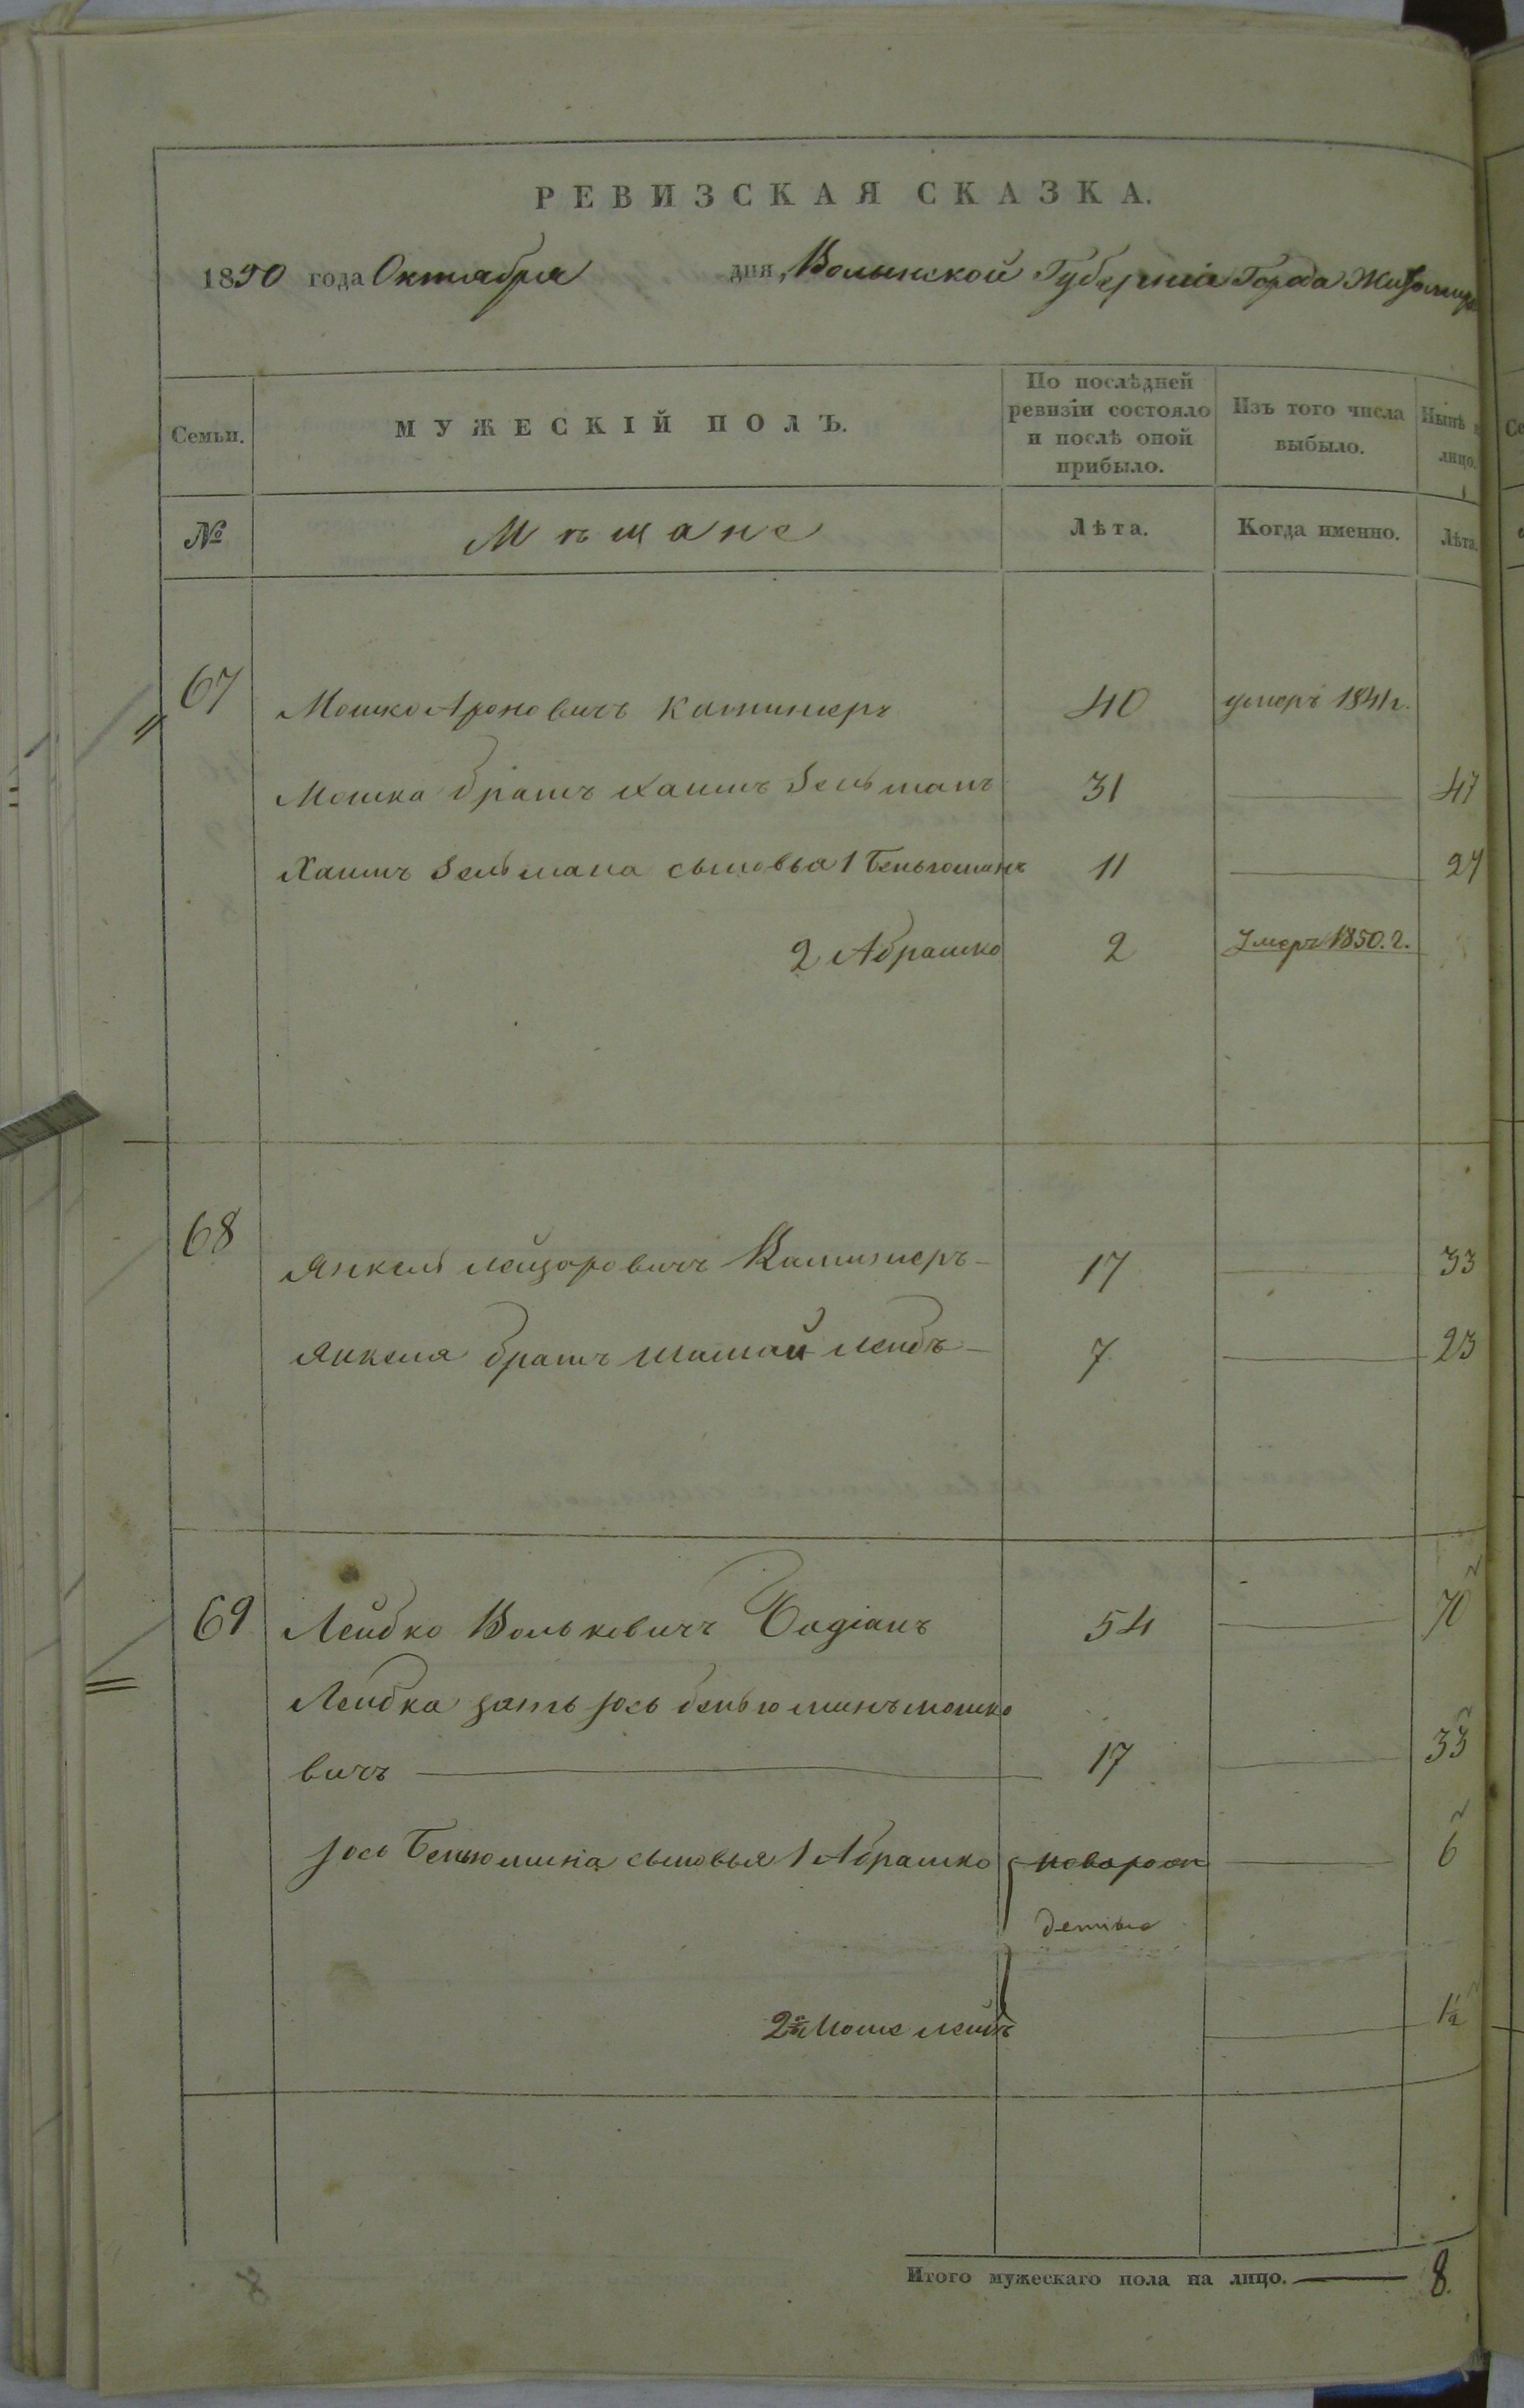 РЕВИЗСКАЯ СКАЗКА.
1850 года Октября дня, Волынской Губернiи Города Житомира
Семьи. МУЖЕСКІЙ ПОЛЪ. По послѣдней ревизіи состояло и послѣ оной прибыло. Изъ того числа выбыло. Нынѣ лицо.
№ Мѣщане Лѣта. Когда именно. Лѣта.
67 Мошко Ароновичъ 40 умеръ 1841 г.
Мошка братъ Хаимъ Зельманъ 31 47
Хаимъ Зельмана сыновья 1 Беньюминъ 11 27
2 Абрашко 2 Умеръ 1850. г.
68 Янкель Лейзоровичъ 17 33
Янкеля братъ Лейбъ 7 23
69 Лейбко Вольковичъ 54 70
Лейбка зять Іось Беньюминъ Мошко
вичъ 17 33
Іось Беньюмина сыновья 1 Абрашко 6
2й Моше 1½
Итого мужескаго пола на лицо. 8.
8